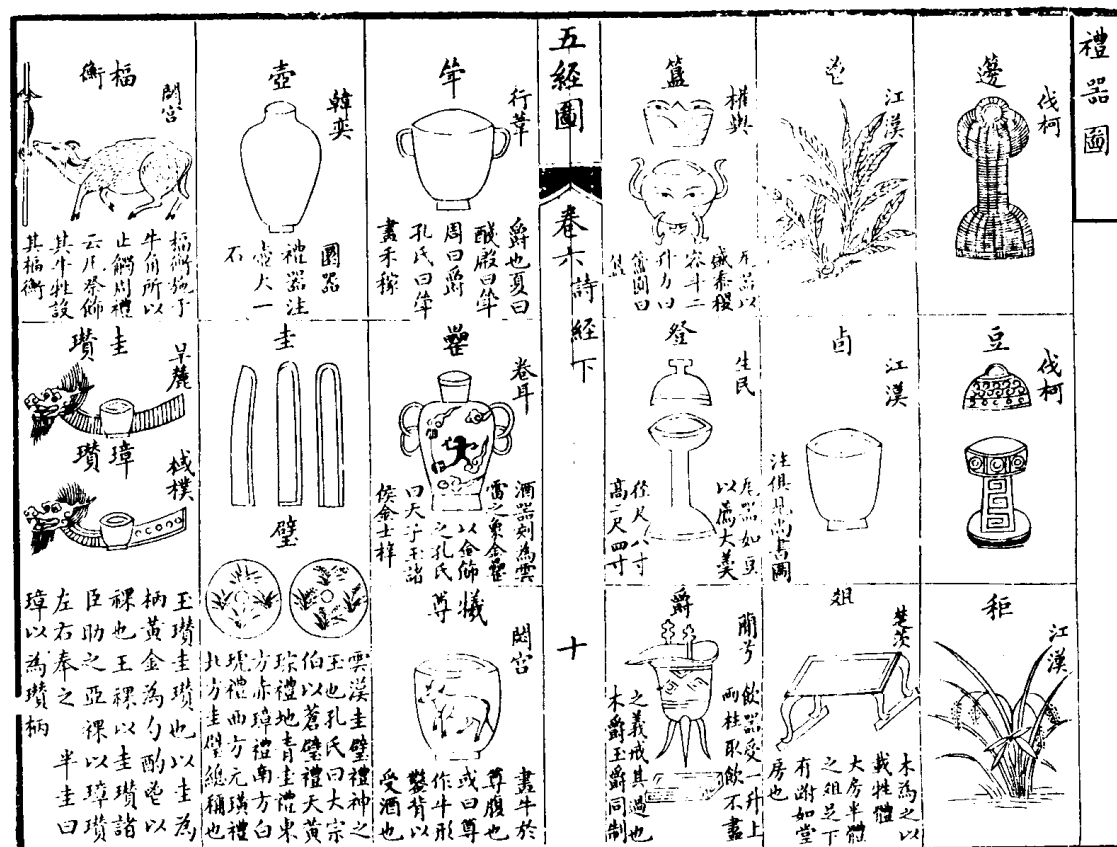 禮器圖
籩
伐柯
豆
伐柯
秬
江漢
鬯
江漢
卣
江漢
注俱見尚書圖
俎
楚茨
木為之以
載牲體
大房半體
之俎足下
有跗如堂
房也
簋
權輿
瓦器以
盛黍稷
容斗二
升方曰
簠圓曰
簋
登
生民
瓦器如豆
以薦大羹
徑尺八寸
高二尺四寸
爵
簡兮
飲器受一升上
兩柱取飲不盡
之義戒其過也
木爵玉爵同制
五經圖
卷六詩經下
十
斝
行葦
爵也夏曰
醆殷曰斝
周曰爵
孔氏曰斝
畫禾稼
罍
卷耳
酒器刻為雲
雷之象金罍
以金飾
之孔氏
曰天子玉諸
侯金士梓
犧尊
閟宮
畫牛於
尊腹也
或曰尊
作牛形
鑿背以
受酒也
壺
韓奕
圜器
禮器注
壺大一
石
圭
璧
雲漢圭璧禮神之
玉也孔氏曰大宗
伯以蒼璧禮天黃
琮禮地青圭禮東
方赤璋禮南方白
琥禮西方元璜禮
北方圭璧總稱也
楅衡
閟宮
楅衡施于
牛角所以
止觸周禮
云凡祭飾
其牛牲設
其楅衡
圭瓚
旱麓
璋瓚
棫樸
玉瓚圭瓚也以圭為
柄黃金為勺酌鬯以
祼也王祼以圭瓚諸
臣助之亞祼以璋瓚
左右奉之 半圭曰
璋以為瓚柄